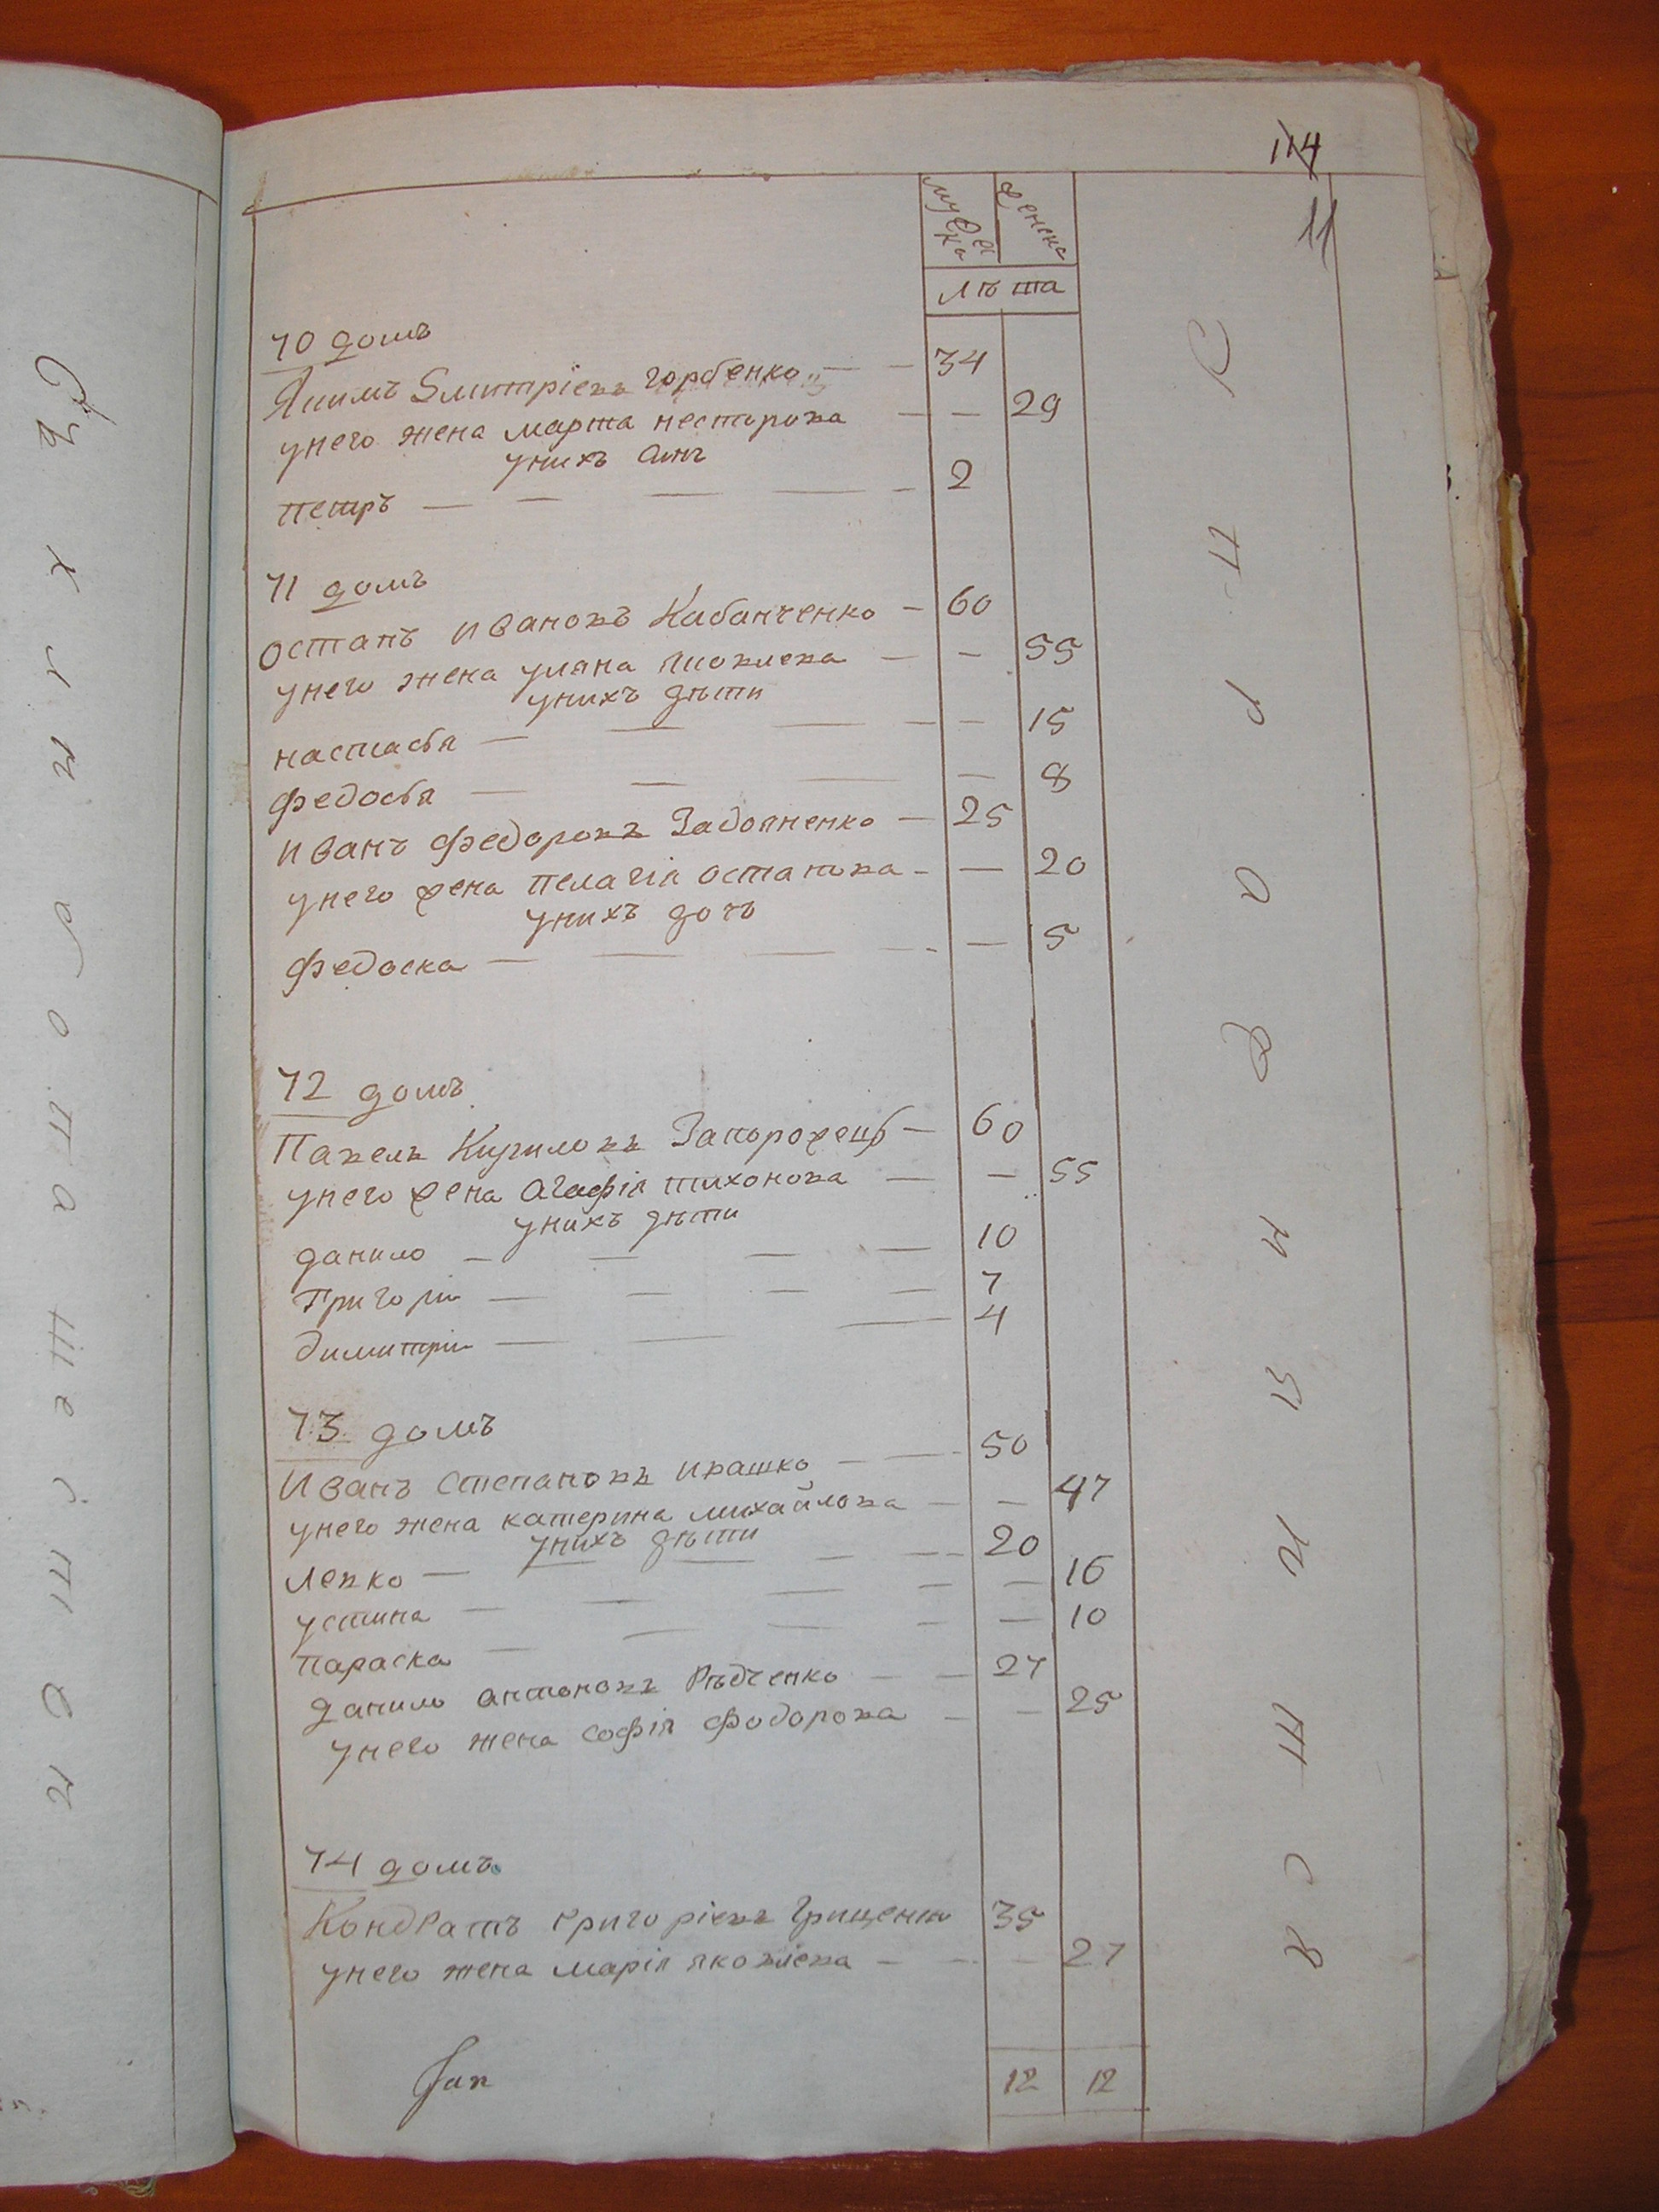 114
11
мужеска
женска
лѣта
70 домъ
Якимъ Дмитріевъ горбенко 34
унего жена марта нестерова 29
унихъ синъ
петръ 2
71 домъ
остапъ Ивановъ Кабанченко 60
унего жена уляна 55
унихъ дѣти
настасья 15
федосья 8
Иванъ федоровъ Задояненко 25
унего жена пелагія остапова 20
унихъ дочь
федоска 5
72 домъ
Павелъ Кириловъ Запорожецъ 60
унего жена агафія тихонова 55
унихъ дѣти
данило 10
Григорій 7
димитрій 4
73 домъ
Иванъ Степановъ ивашко 50
унего жена катерина михайлова 47
унихъ дѣти
левко 20
устина 16
параска 10
данило антоновъ Рѣдченко 27
унего жена софія федорова 25
74 домъ
Кондратъ григоріевъ Гриценко 35
унего жена марія яковлева 27
12 12